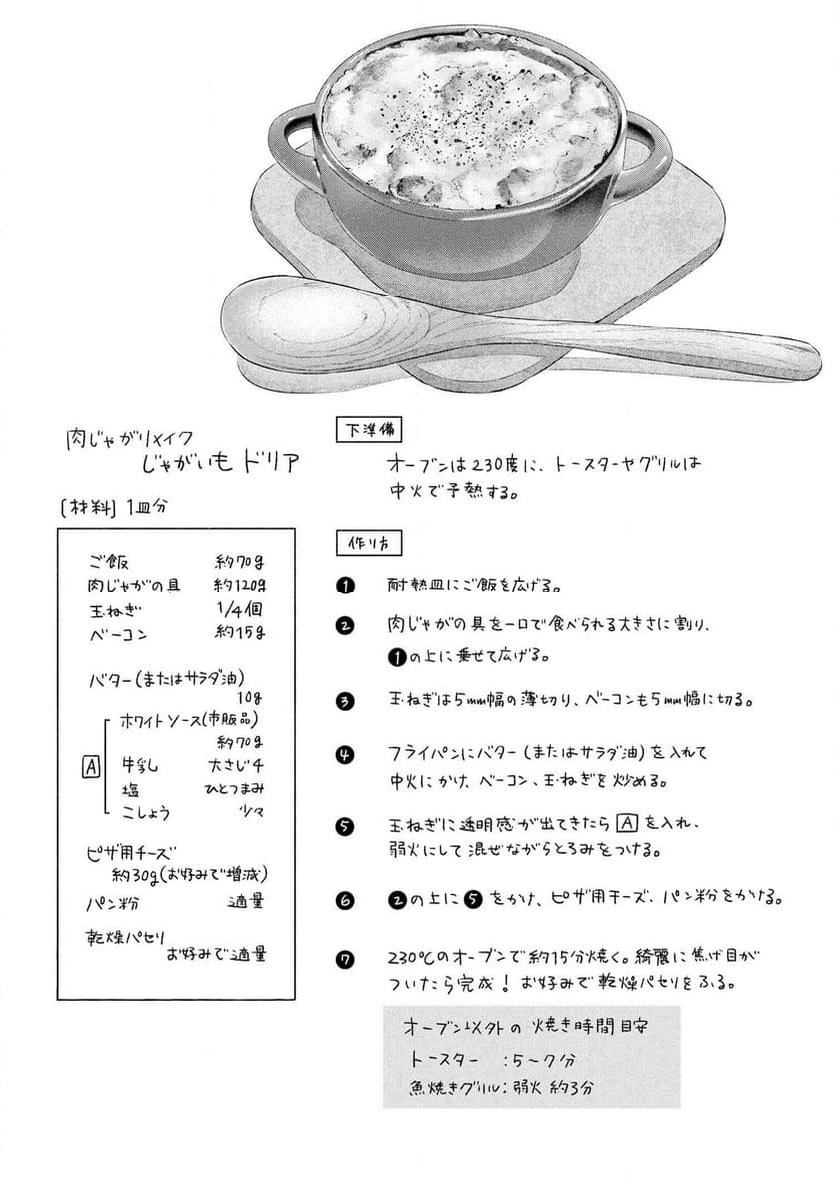 肉じゃがリメイク
じゃがいもドリア
[材料] 1皿分
ご飯 約70g
肉じゃがの具 約120g
玉ねぎ 1/4個
ベーコン 約15g
バター(またはサラダ油)
10g
ホワイトソース(市販品)
約70g
A 牛乳 大さじ4
塩 ひとつまみ
こしょう 少々
ピザ用チーズ
約30g(お好みで増減)
パン粉 適量
乾燥パセリ
お好みで適量
下準備
オーブンは230度に、トースターやグリルは
中火で予熱する。
作り方
❶ 耐熱皿にご飯を広げる。
❷ 肉じゃがの具を一口で食べられる大きさに割り、
❶の上に乗せて広げる。
❸ 玉ねぎは5mm幅の薄切り、ベーコンも5mm幅に切る。
❹ フライパンにバター(またはサラダ油)を入れて
中火にかけ、ベーコン、玉ねぎを炒める。
❺ 玉ねぎに透明感が出てきたら A を入れ、
弱火にして混ぜながらとろみをつける。
❻ ❷の上に❺をかけ、ピザ用チーズ、パン粉をかける。
❼ 230℃のオーブンで約15分焼く。綺麗に焦げ目が
ついたら完成! お好みで乾燥パセリをふる。
オーブン以外の焼き時間目安
トースター :5〜7分
魚焼きグリル:弱火 約3分